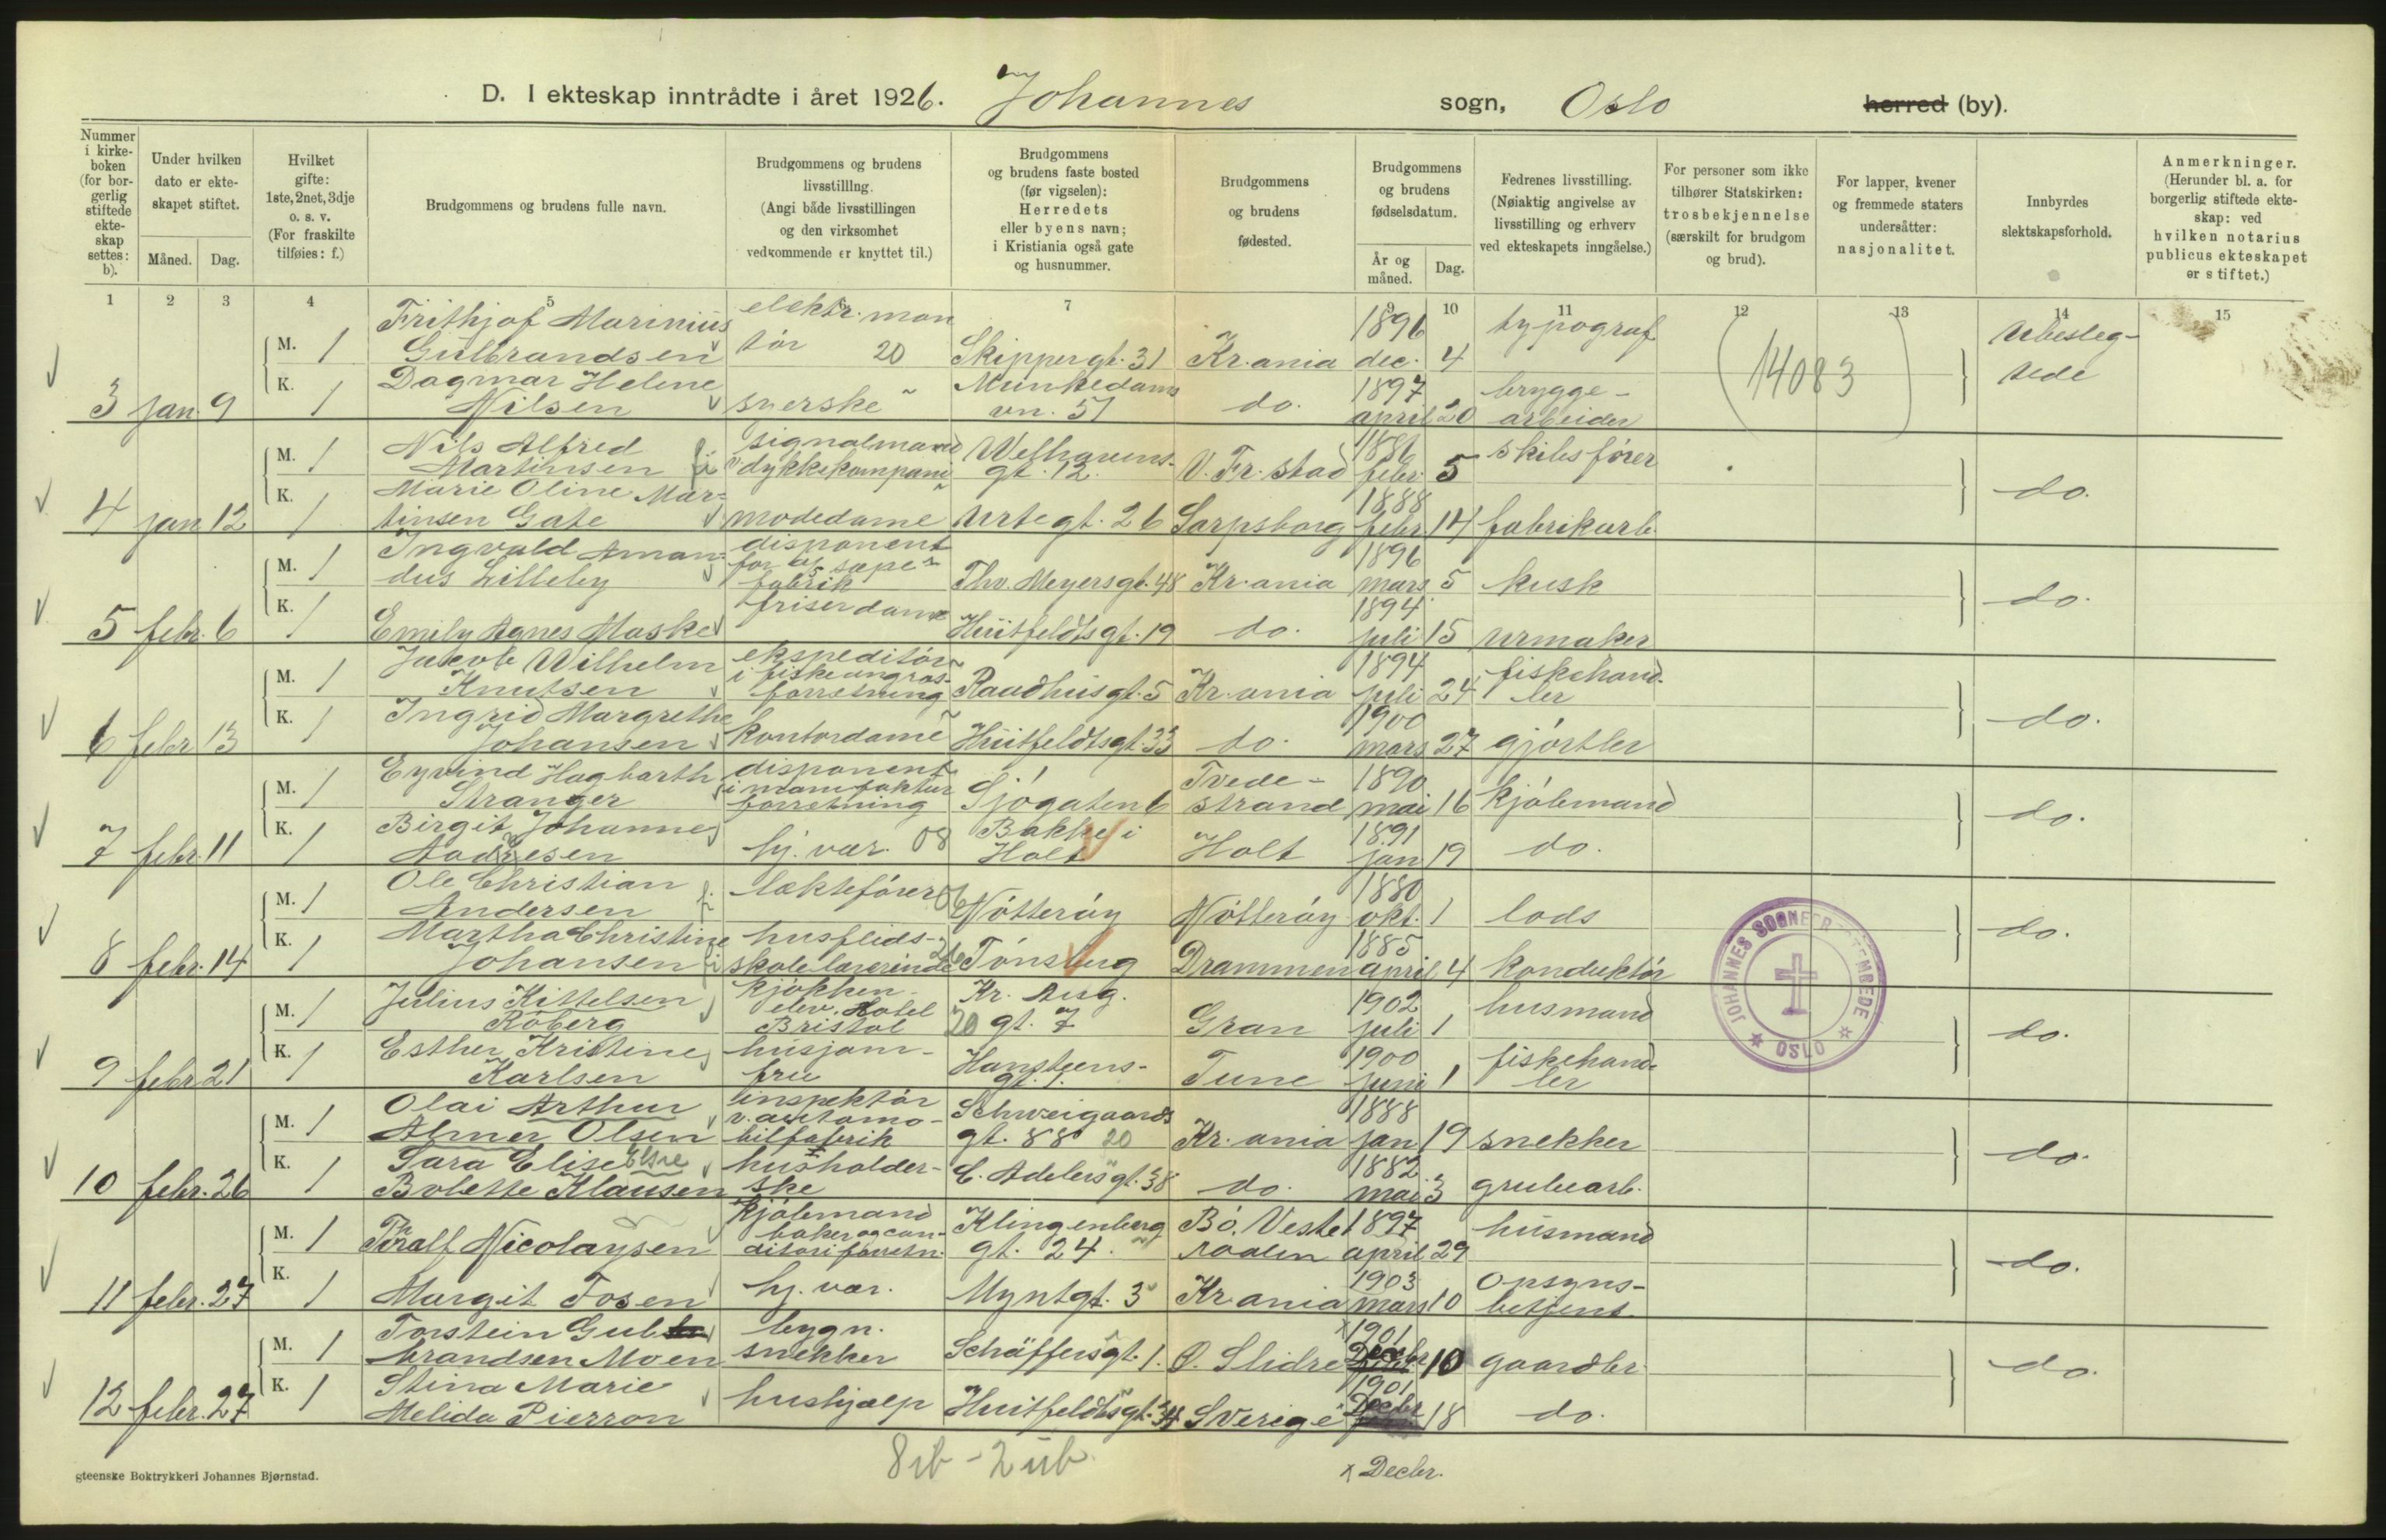 D. I ekteskap inntrådte i året 1926. Johannes sogn, Oslo herred (by).
Nummer i kirkeboken (for borgerlig stiftede ekteskap settes: b).
Under hvilken dato er ekteskapet stiftet.
Måned. Dag.
Hvilket gifte: 1ste, 2net, 3dje o. s. v. (For fraskilte tilføies: f.)
Brudgommens og brudens fulle navn.
Brudgommens og brudens livsstilllng. (Angi både livsstillingen og den virksomhet vedkommende er knyttet til.)
Brudgommens og brudens faste bosted (før vigselen): Herredets eller byens navn; i Kristiania også gate og husnummer.
Brudgommens og brudens fødested.
Brudgommens og brudens fødselsdatum.
År og måned. Dag.
Fedrenes livsstilling. (Nøiaktig angivelse av livsstilling og erhverv ved ekteskapets inngåelse.)
For personer som ikke tilhører Statskirken: trosbekjennelse (særskilt for brudgom og brud).
For lapper, kvener og fremmede staters undersåtter: nasjonalitet.
Innbyrdes slektskapsforhold.
Anmerkninger. (Herunder bl. a. for borgerlig stiftede ekteskap: ved hvilken notarius publicus ekteskapet er stiftet.)
1 2 3 4 5 6 7 9 10 11 12 13 14 15
M. 1 Frithjof Marinius Gulbrandsen elektr. montör 20 Skippergt. 31 Kr.ania 1896 dec. 4 typograf (14083) Ubesleg-tede
3 jan. 9 K. 1 Dagmar Helene Nilsen syerske Munkedams vn. 51 do. 1897 april 20 brygge-arbeider
M. 1 Nils Alfred Martinsen signalmand v dykkekompani Welhavens-gt. 12. V. Fr.stad 1886 febr. 5 skibsfører do.
4 jan 12 K. 1 Marie Oline Mar-tinsen Gate modedame Urtegt. 26 Sarpsborg 1888 febr. 14 fabrikarb.
M. 1 Ingvald Aman-dus Lilleby disponent for sæpe-fabrik Thv. Meyersgt. 48 Kr.ania 1896 mars 5 kusk do.
5 febr. 6 K. 1 Emily Agnes Maske friserdame Huitfeldtsgt. 19 do. 1894 juli 15 urmaker
M. 1 Jacob Wilhelm Knutsen ekspeditör i fiskeengros-forretning Raadhusgt. 5 Kr.ania 1894 juli 24 fiskehand-ler do.
6 febr 13 K. 1 Ingrid Margrethe Johansen kontordame Huitfeldtsgt. 33 do. 1900 mars 27 gjörtler
M. 1 Eyvind Hagbarth Stranger disponent i manufaktur forretning Sjögaten 6 Tvede-strand 1890 mai 16 kjöbmand do.
7 febr. 11 K. 1 Birgit Johanne Aadnesen hj. vær. 08 Bakke i Holt Holt 1891 jan 19 do.
M. 1 Ole Christian Andersen lækteförer 06 Nötteröy Nötteröy 1880 okt. 1 lods do.
8 febr. 14 K. 1 Martha Christine Johansen husflids-skolelærerinde Tönsberg Drammen 1885 april 4 konduktör
M. 1 Julius Kittelsen Röberg kjökken-elev. Hotel Bristol Kr. Aug. 20 gt. 7 Gran 1902 juli 1 husmand do.
9 febr 21 K. 1 Esther Kristine Karlsen husjom-fru Hansteens-gt. 1. Tune 1900 juni 1 fiskehand-ler
M. 1 Olai Arthur Almer Olsen inspektör v. automo-bilfabrik Schweigaards gt. 88 20 Kr.ania 1888 jan 19 snekker do.
10 febr. 26 K. 1 Sara Elise Else Bolette Klausen husholder-ske C. Adelersgt. 38 do. 1882 mai 3 grubearb.
M. 1 Thoralf Nicolaysen kjöbmand baker og con-ditoriforretn. Klingenberg gt. 24. Bö. Veste raalen 1897 april 29 husmand do.
11 febr. 27 K. 1 Margit Fosen hj. vær. Myntgt. 3 Kr.ania 1903 mars 10 Opsyns-betjent
M. 1 Torstein Gul brandsen Moen bygn. snekker Schäffersgt. 1. Ø. Slidre x 1901 Decbr 10 gaardbr. do.
12 febr. 27 K. 1 Stina Marie Melida Pierron hushjælp Huitfeldtsgt. 34 Sverige 1901 Decbr 18 do.
JOHANNES SOGNEPRESTEMBEDE OSLO
8 ib - 2 ub.
x Decbr.
steenske Boktrykkeri Johannes Bjørnstad.